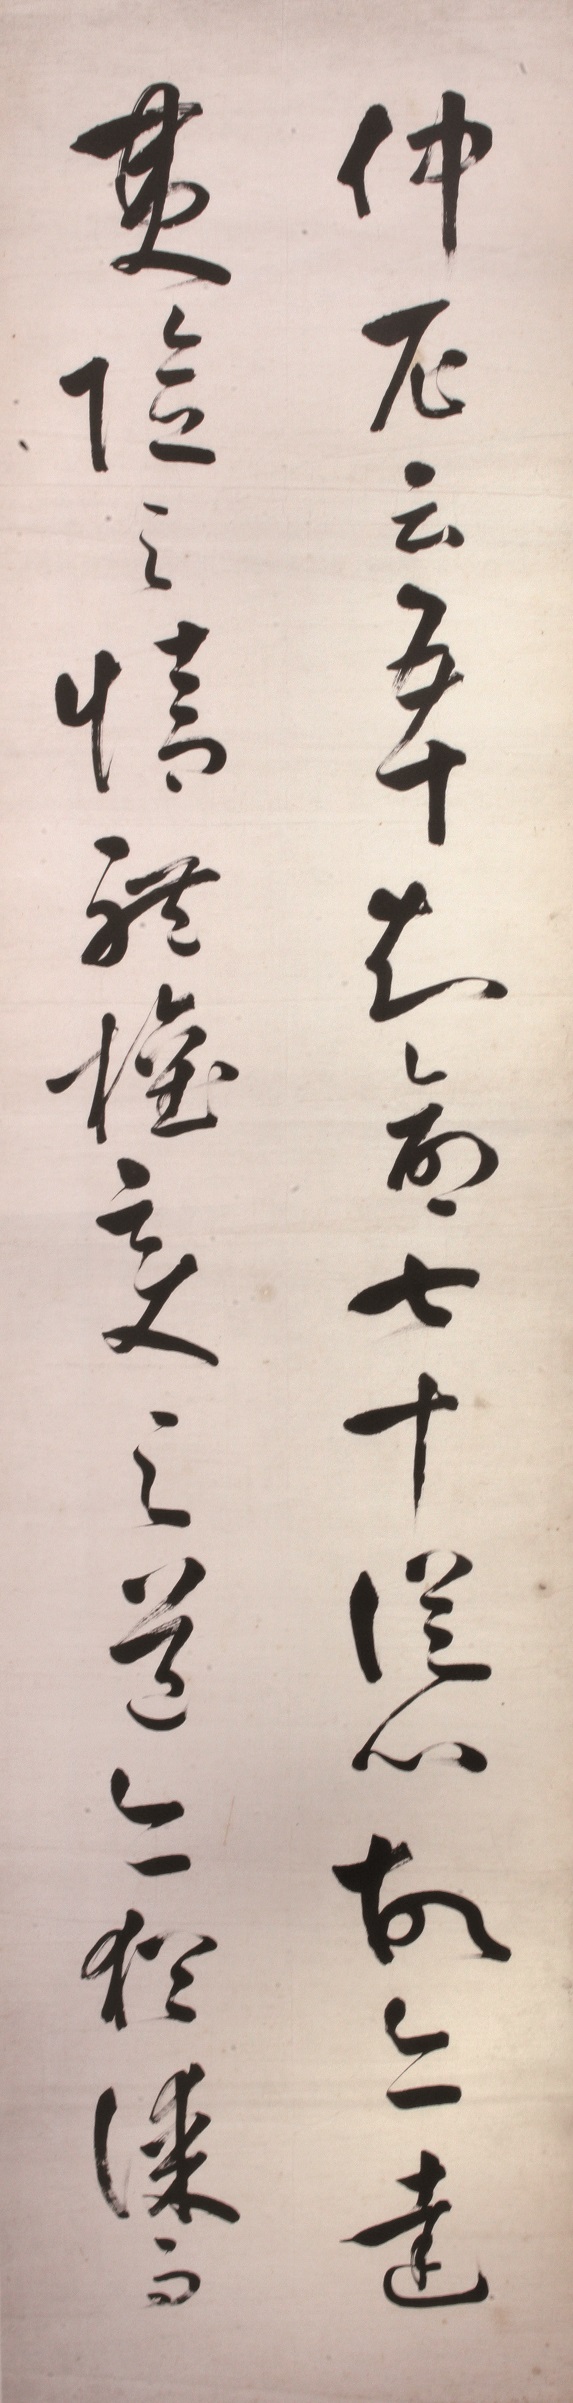 仲尼云五十知命七十從心故以達
夷險之情體權變之道亦猶謀而